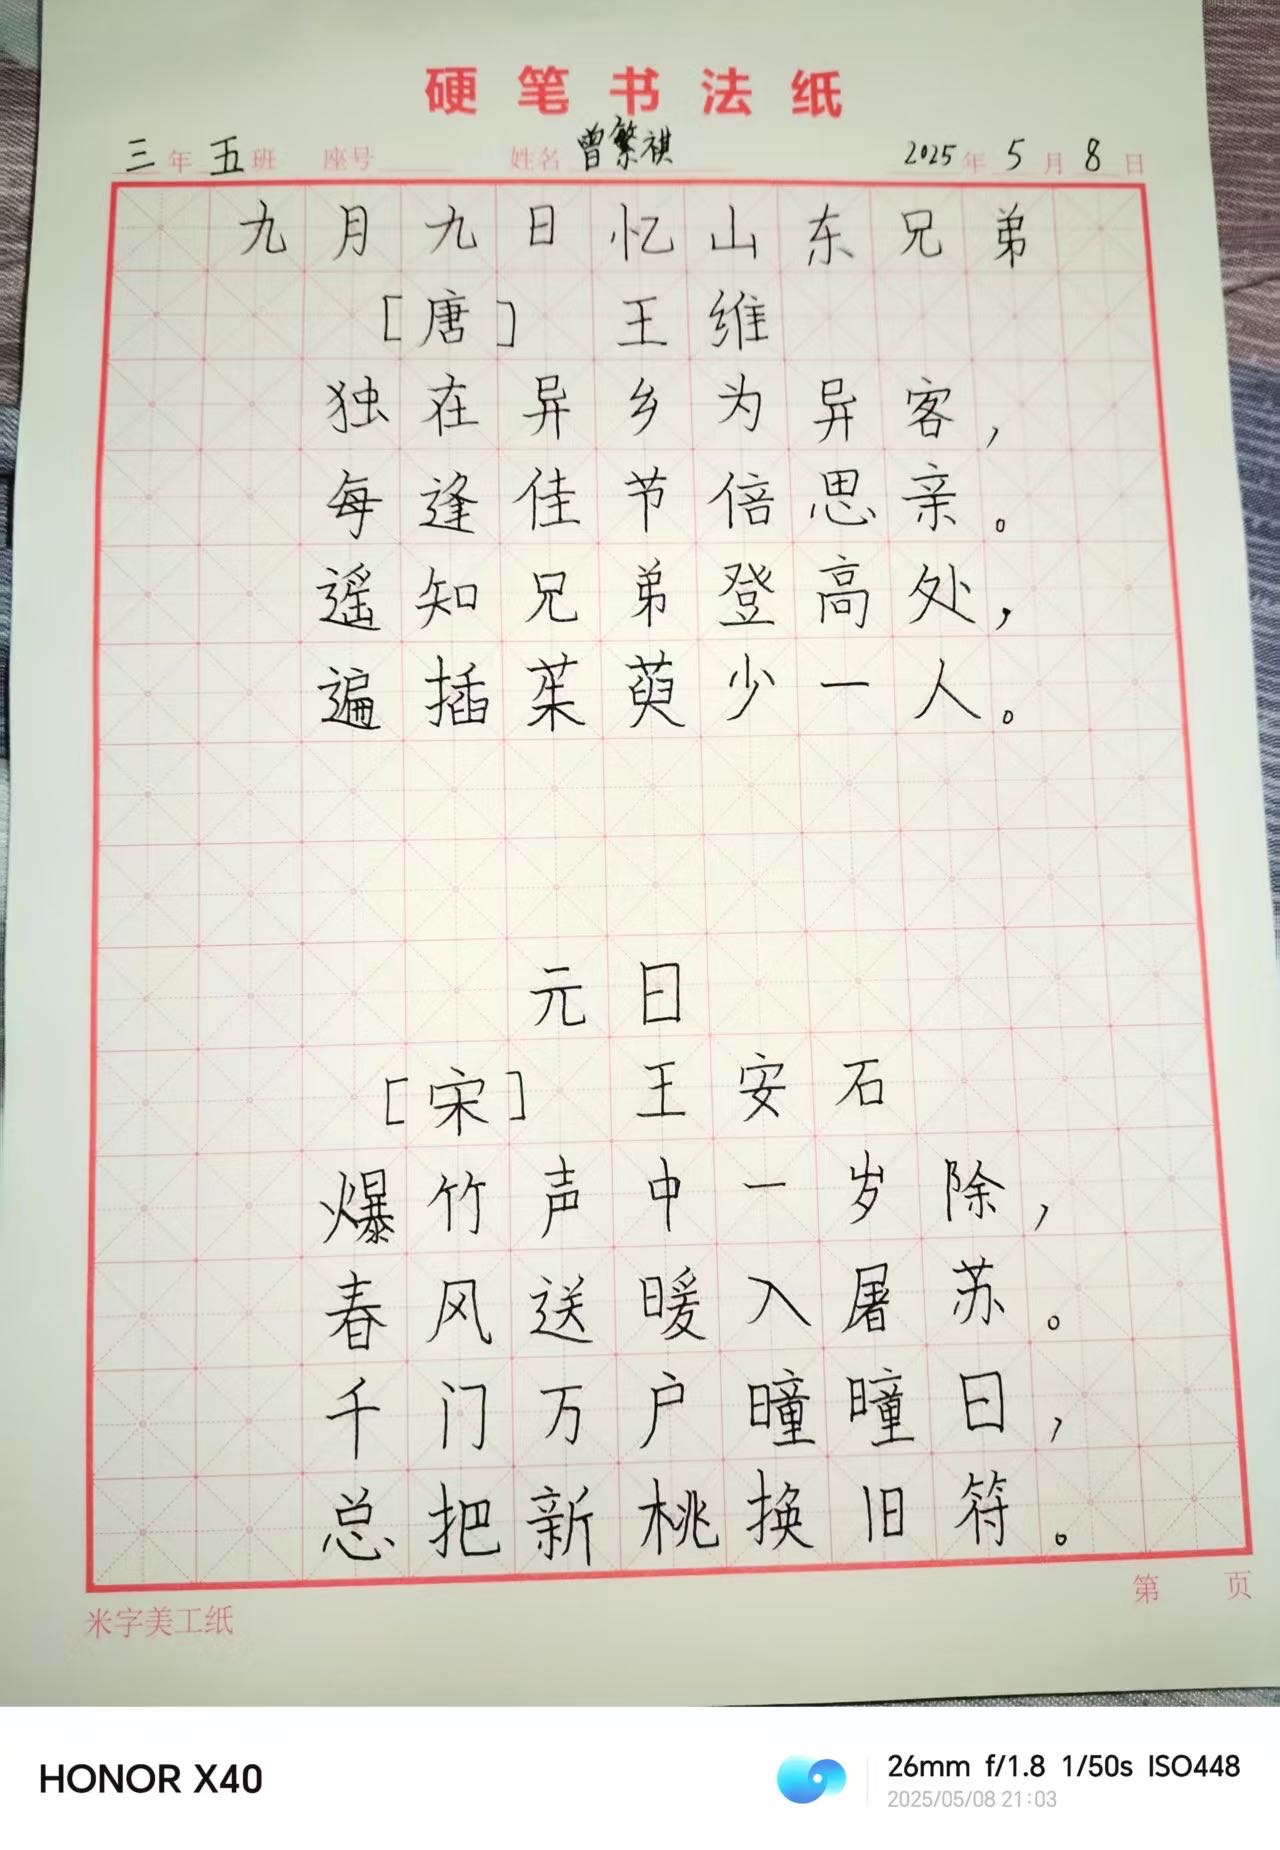 硬笔书法纸
三年 五班 座号 姓名 曾繁祺 2025年5月8日
九月九日忆山东兄弟
[唐] 王维
独在异乡为异客,
每逢佳节倍思亲。
遥知兄弟登高处,
遍插茱萸少一人。
元日
[宋] 王安石
爆竹声中一岁除,
春风送暖入屠苏。
千门万户曈曈日,
总把新桃换旧符。
米字美工纸 第 页
HONOR X40
26mm f/1.8 1/50s ISO448
2025/05/08 21:03